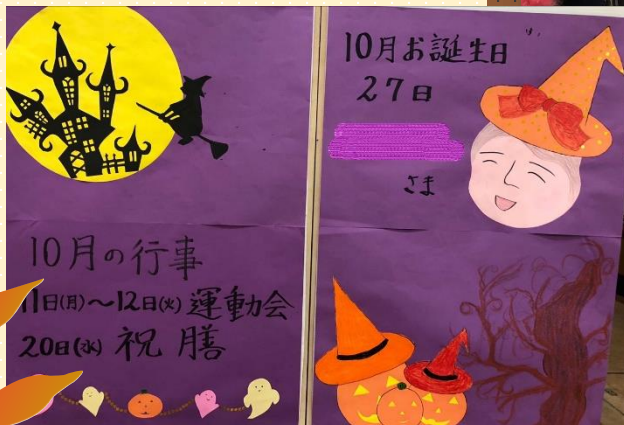 10月の行事
11日(月)~12日(火) 運動会
20日(水) 祝膳
10月お誕生日
27日
さま